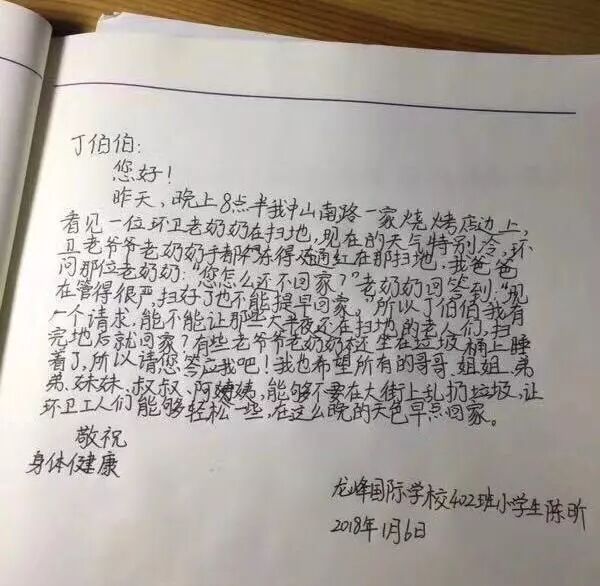 丁伯伯:
您好!
昨天,晚上8点半我中山南路一家烧烤店边上,
看见一位环卫老奶奶在扫地,现在的天气特别冷,环
卫老爷爷老奶奶手都冻得通红在那扫地,我爸爸
问那位老奶奶:“您怎么还不回家?”老奶奶回答到,“现
在管得很严,扫好了也不能提早回家。”所以丁伯伯我有
一个请求,能不能让那些大半夜还在扫地的老人们,扫
完地后就回家?有些老爷爷老奶奶还坐在垃圾桶上睡
着了,所以请您答应我吧!我也希望所有的哥哥、姐姐、弟
弟、妹妹、叔叔、阿姨,能够不要在大街上乱扔垃圾,让
环卫工人们能够轻松一些,在这么晚的天色早点回家。
敬祝
身体健康
龙峰国际学校402班小学生陈昕
2018年1月6日